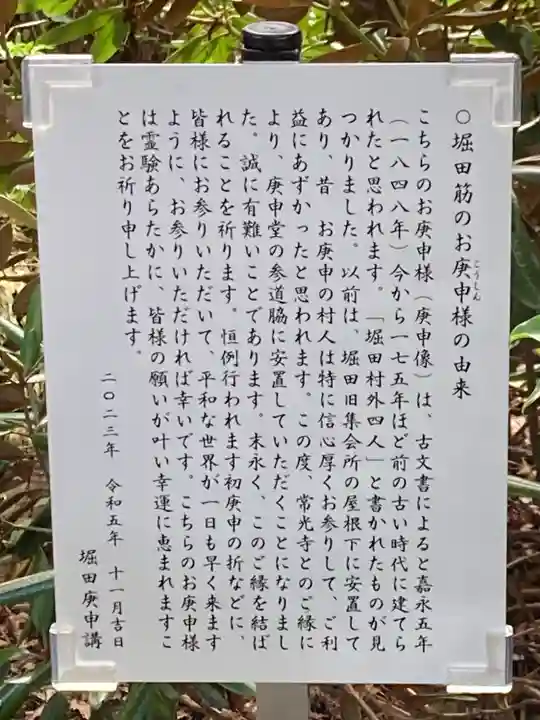 ○堀田筋のお庚申様の由来
こうしん
こちらのお庚申様(庚申像)は、古文書によると嘉永五年
(一八四八年)今から一七五年ほど前の古い時代に建てら
れたと思われます。「堀田村外四人」と書かれたものが見
つかりました。以前は、堀田旧集会所の屋根下に安置して
あり、昔 お庚申の村人は特に信心厚くお参りして、ご利
益にあずかったと思われます。この度、常光寺とのご縁に
より、庚申堂の参道脇に安置していただくことになりまし
た。誠に有難いことであります。末永く、このご縁を結ば
れることを祈ります。恒例行われます初庚申の折などに、
皆様にお参りいただいて、平和な世界が一日も早く来ます
ように、お参りいただければ幸いです。こちらのお庚申様
は霊験あらたかに、皆様の願いが叶い幸運に恵まれますこ
とをお祈り申し上げます。
二〇二三年 令和五年 十一月吉日
堀田庚申講